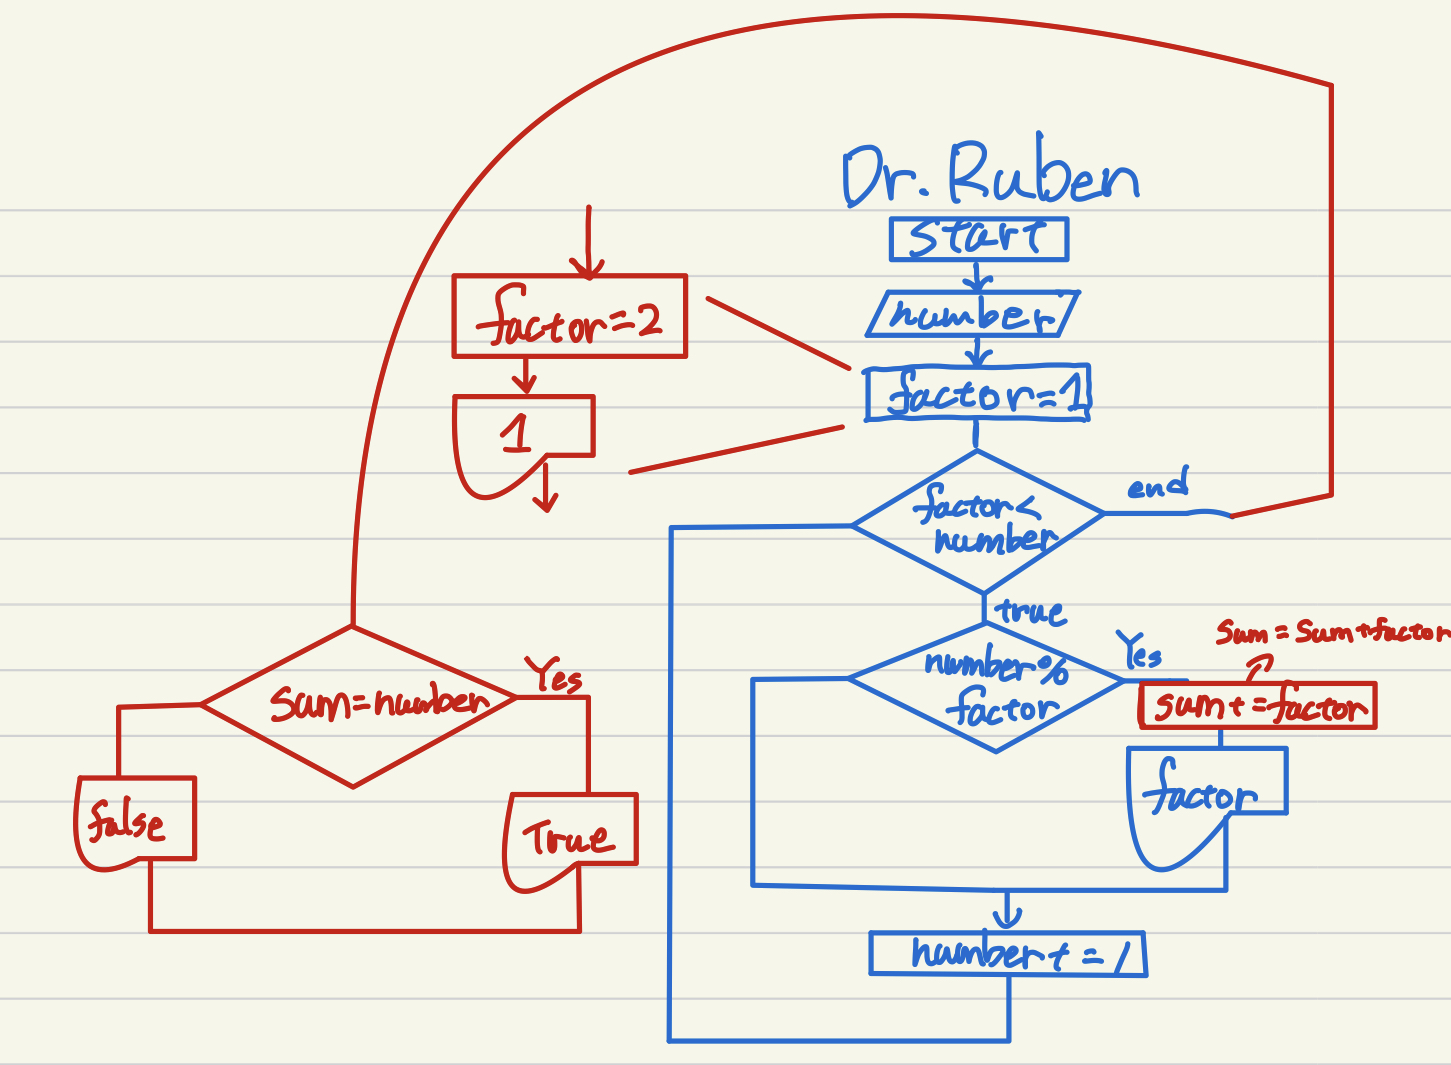 Dr. Ruben
start
number
factor=1
factor=2
1
factor<
number
end
true
number%
factor
Yes
sum=sum+factor
sum+=factor
factor
number+=1
sum=number
Yes
false
True